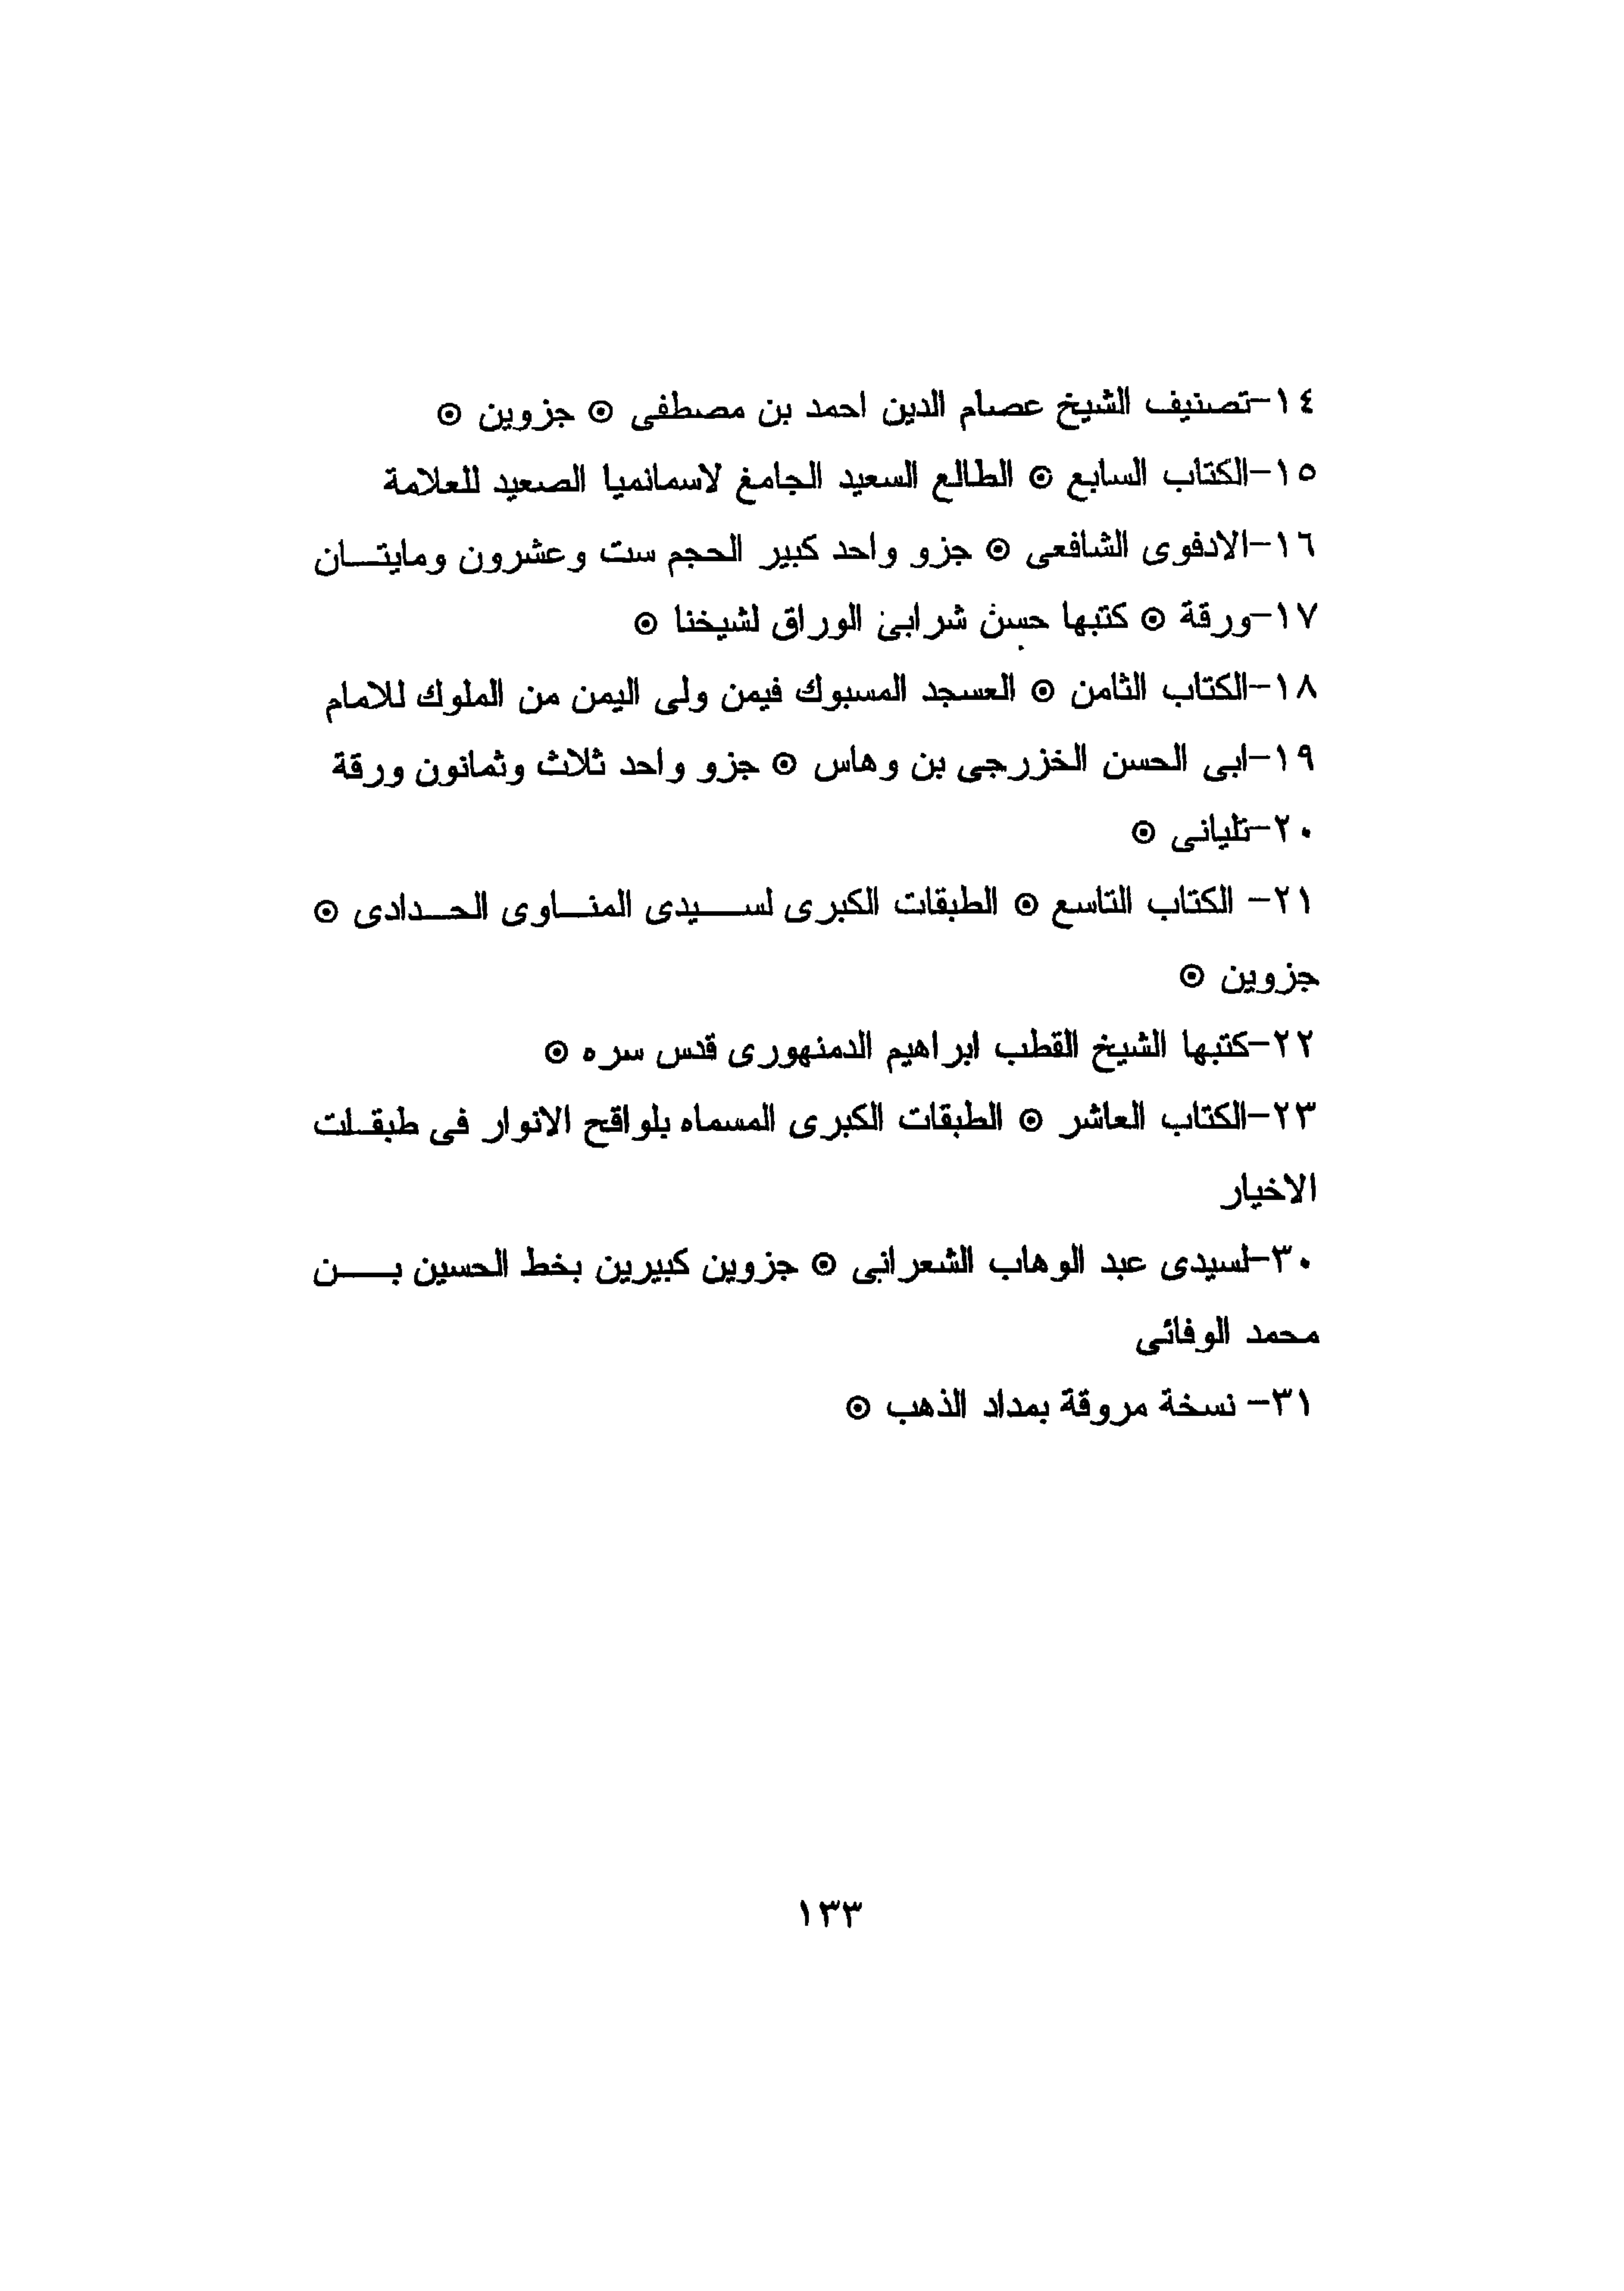 ١٤-تصنيف الشيخ عصام الدين احمد بن مصطفى ⊙ جزوين ⊙
١٥-الكتاب السابع ⊙ الطالع السعيد الجامع لاسمانميا الصعيد للعلامة
١٦-الادفوى الشافعى ⊙ جزو واحد كبير الحجم ست وعشرون ومايتان
١٧-ورقة ⊙ كتبها حسن شرابى الوراق لشيخنا ⊙
١٨-الكتاب الثامن ⊙ العسجد المسبوك فيمن ولى اليمن من الملوك للامام
١٩-ابى الحسن الخزرجى بن وهاس ⊙ جزو واحد ثلاث وثمانون ورقة
٢٠-تليانى ⊙
٢١- الكتاب التاسع ⊙ الطبقات الكبرى لسيدى المناوى الحدادى ⊙
جزوين ⊙
٢٢-كتبها الشيخ القطب ابراهيم الدمنهورى قدس سره ⊙
٢٣-الكتاب العاشر ⊙ الطبقات الكبرى المسماه بلواقح الانوار فى طبقلت
الاخيار
٣٠-لسيدى عبد الوهاب الشعرانى ⊙ جزوين كبيرين بخط الحسين بن
محمد الوفائى
٣١- نسخة مروقة بمداد الذهب ⊙
١٣٣